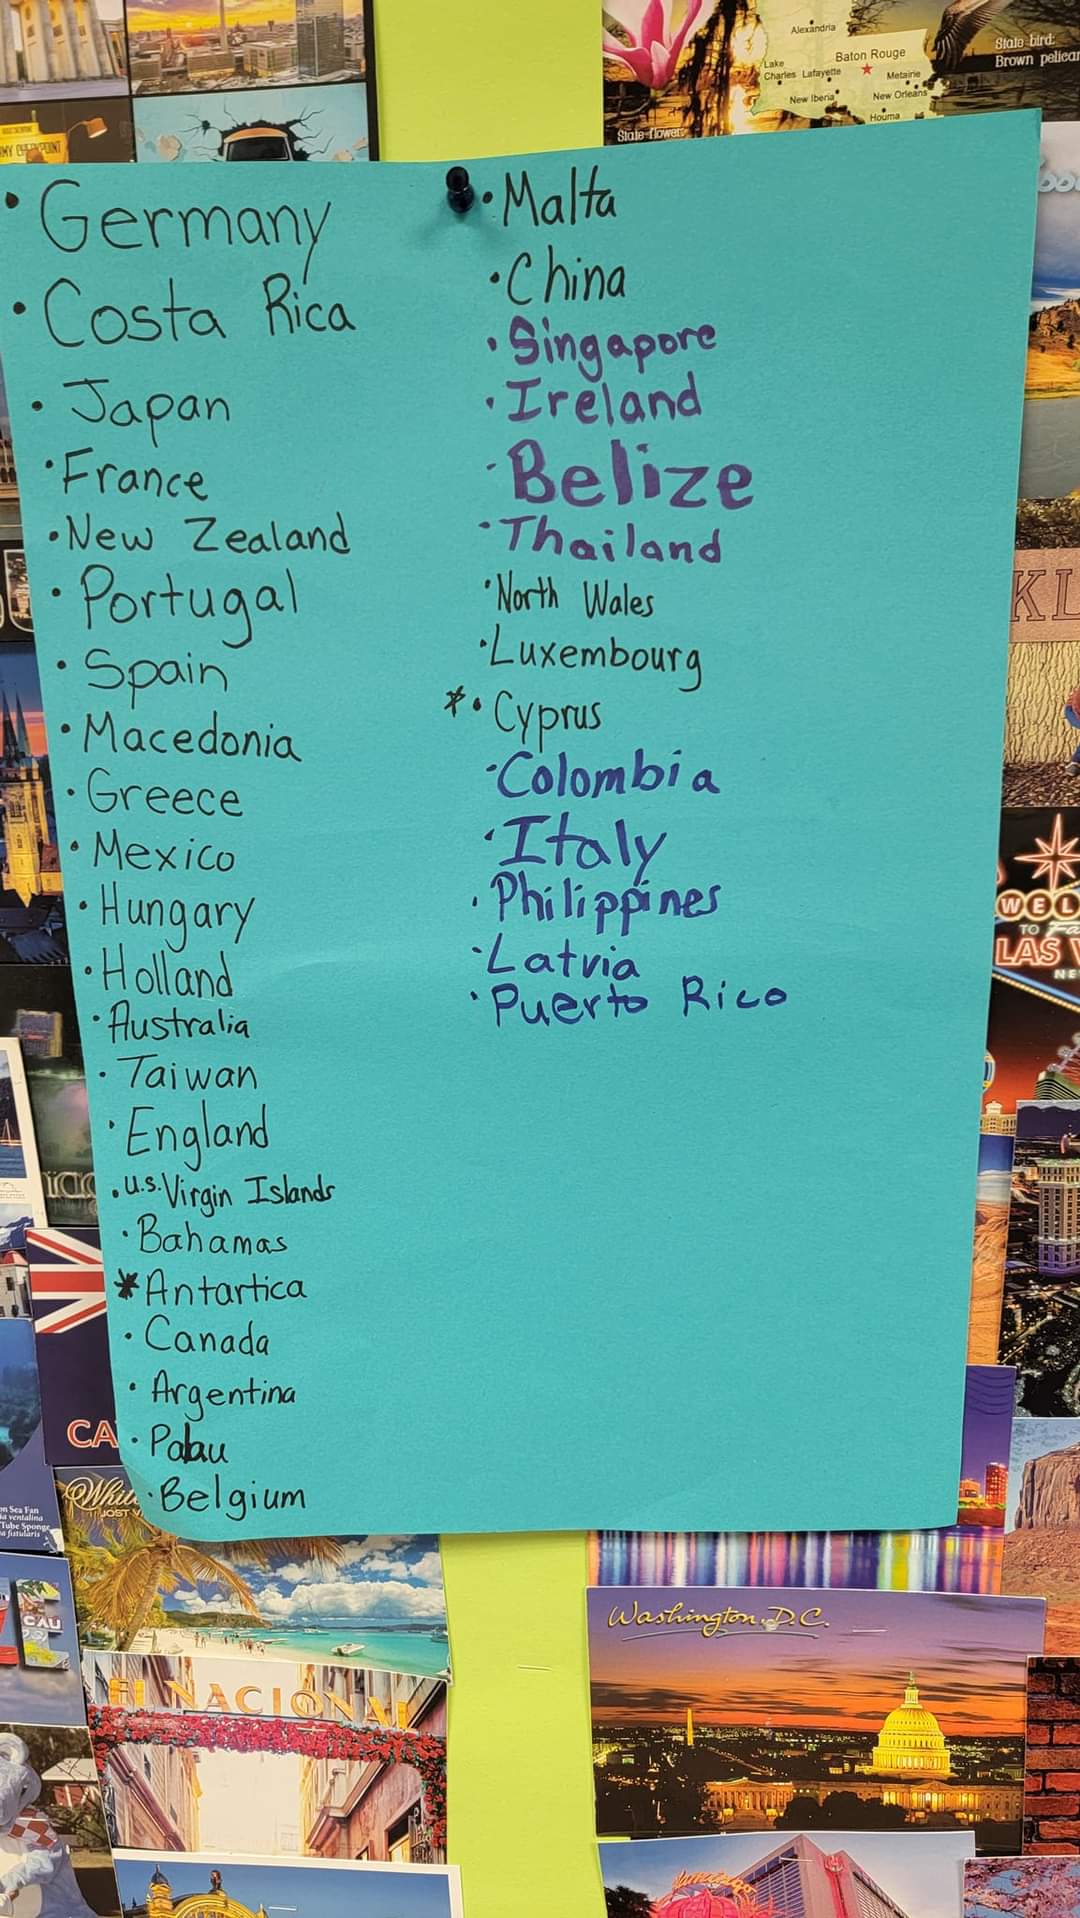 Alexandria
Baton Rouge
Lake
Charles
Lafayette
Metairie
New Iberia
New Orleans
Houma
State flower:
State bird:
Brown pelican
• Germany
• Costa Rica
• Japan
• France
• New Zealand
• Portugal
• Spain
• Macedonia
• Greece
• Mexico
• Hungary
• Holland
• Australia
• Taiwan
• England
• U.S. Virgin Islands
• Bahamas
* Antartica
• Canada
• Argentina
• Palau
• Belgium
• Malta
• China
• Singapore
• Ireland
• Belize
• Thailand
• North Wales
• Luxembourg
* • Cyprus
• Colombia
• Italy
• Philippines
• Latvia
• Puerto Rico
KL
WEL
TO Fa
LAS V
NE
CA
White
JOST V
n Sea Fan
a ventalina
Tube Sponge
a fistularis
CAU
EL NACIONAL
Washington, D.C.
Flamingo